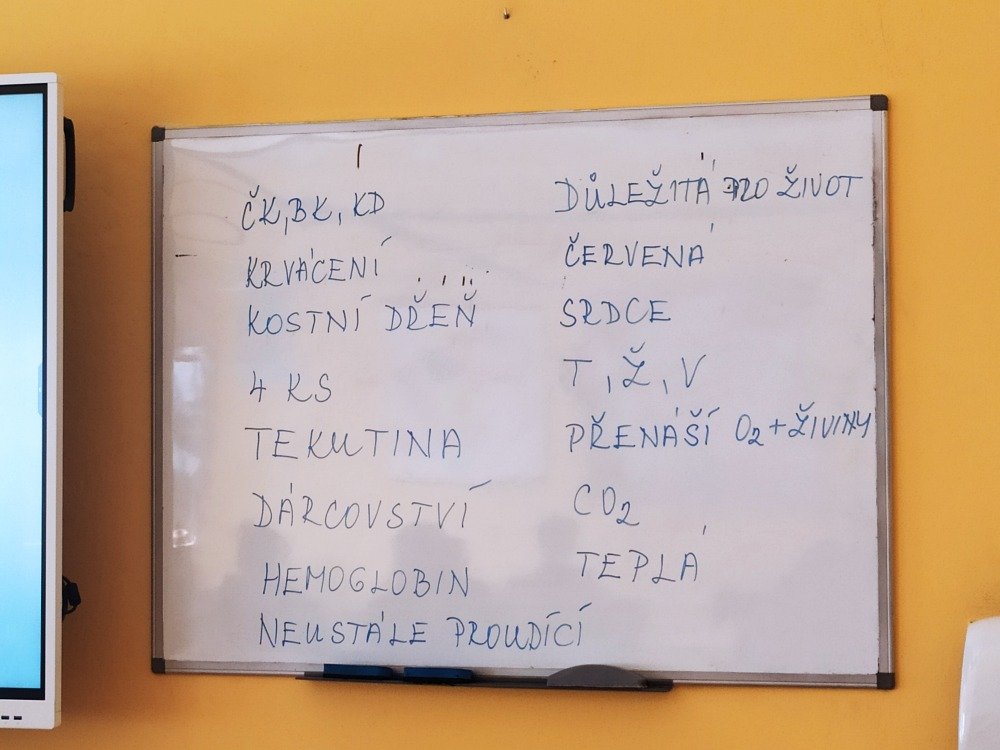 ČK, BK, KD
KRVÁCENÍ
KOSTNÍ DŘEŇ
4 KS
TEKUTINA
DÁRCOVSTVÍ
HEMOGLOBIN
NEUSTÁLE PROUDÍCÍ
DŮLEŽITÁ PRO ŽIVOT
ČERVENÁ
SRDCE
T, Ž, V
PŘENÁŠÍ O₂ + ŽIVINY
CO₂
TEPLÁ